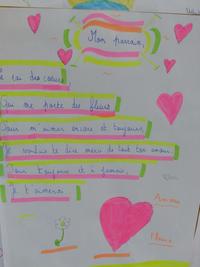 Mon parrain,
des cœurs,
Qui me porte des fleurs
Pour m'aimer encore et toujours,
Je voulais te dire merci de tout ton amour.
Pour toujours et à jamais,
Je t'aimerai
Amour
Fleurs